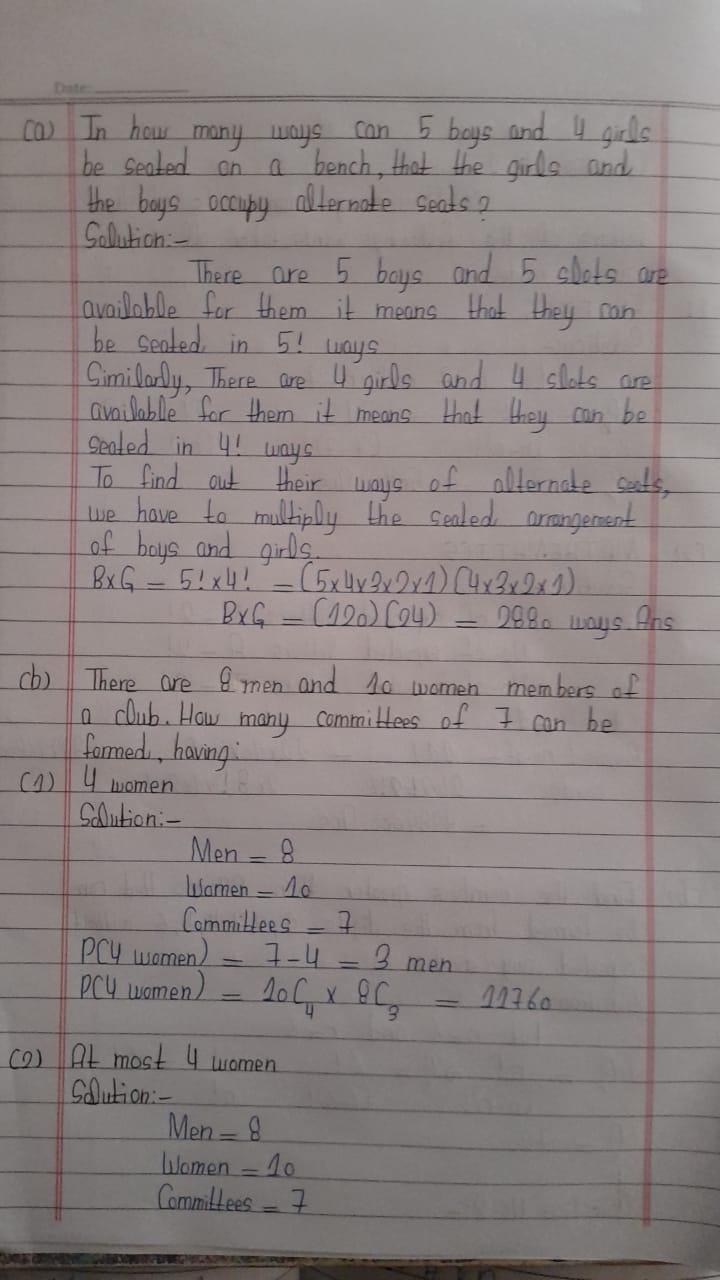 Date:
(a) In how many ways can 5 boys and 4 girls
be seated on a bench, that the girls and
the boys occupy alternate seats?
Solution:-
There are 5 boys and 5 slots are
available for them it means that they can
be seated in 5! ways
Similarly, There are 4 girls and 4 slots are
available for them it means that they can be
seated in 4! ways
To find out their ways of alternate seats,
we have to multiply the seated arrangement
of boys and girls.
B×G = 5! × 4! = (5×4×3×2×1)(4×3×2×1)
B×G = (120)(24) = 2880 ways. Ans
(b) There are 8 men and 10 women members of
a club. How many committees of 7 can be
formed, having:
(1) 4 women
Solution:-
Men = 8
Women = 10
Committees = 7
P(4 women) = 7-4 = 3 men
P(4 women) = 10C₄ × 8C₃ = 11760
(2) At most 4 women
Solution:-
Men = 8
Women = 10
Committees = 7